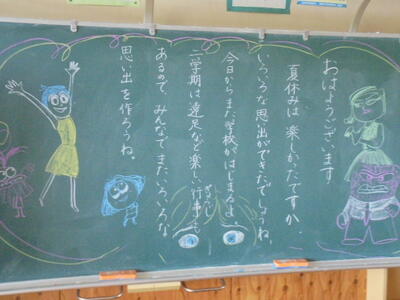 おはようございます
夏休みは楽しかったですか。
いろいろな思出ができたでしょうね。
今日からまた学校がはじまるよ。
二学期は遠足など楽しい行事も
ぎょうじ
あるので、みんなでまたいろいろな
思い出を作ろうね。